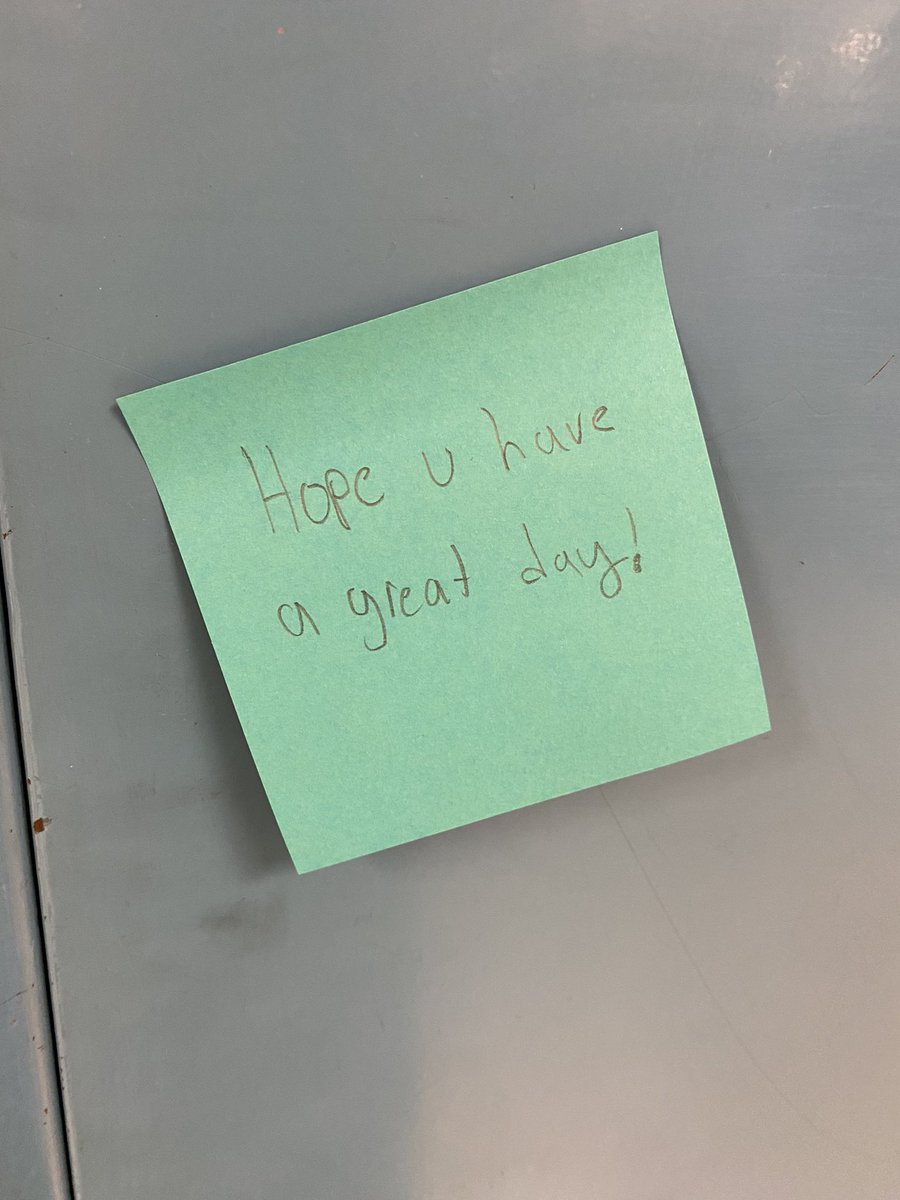 Hope u have
a great day!